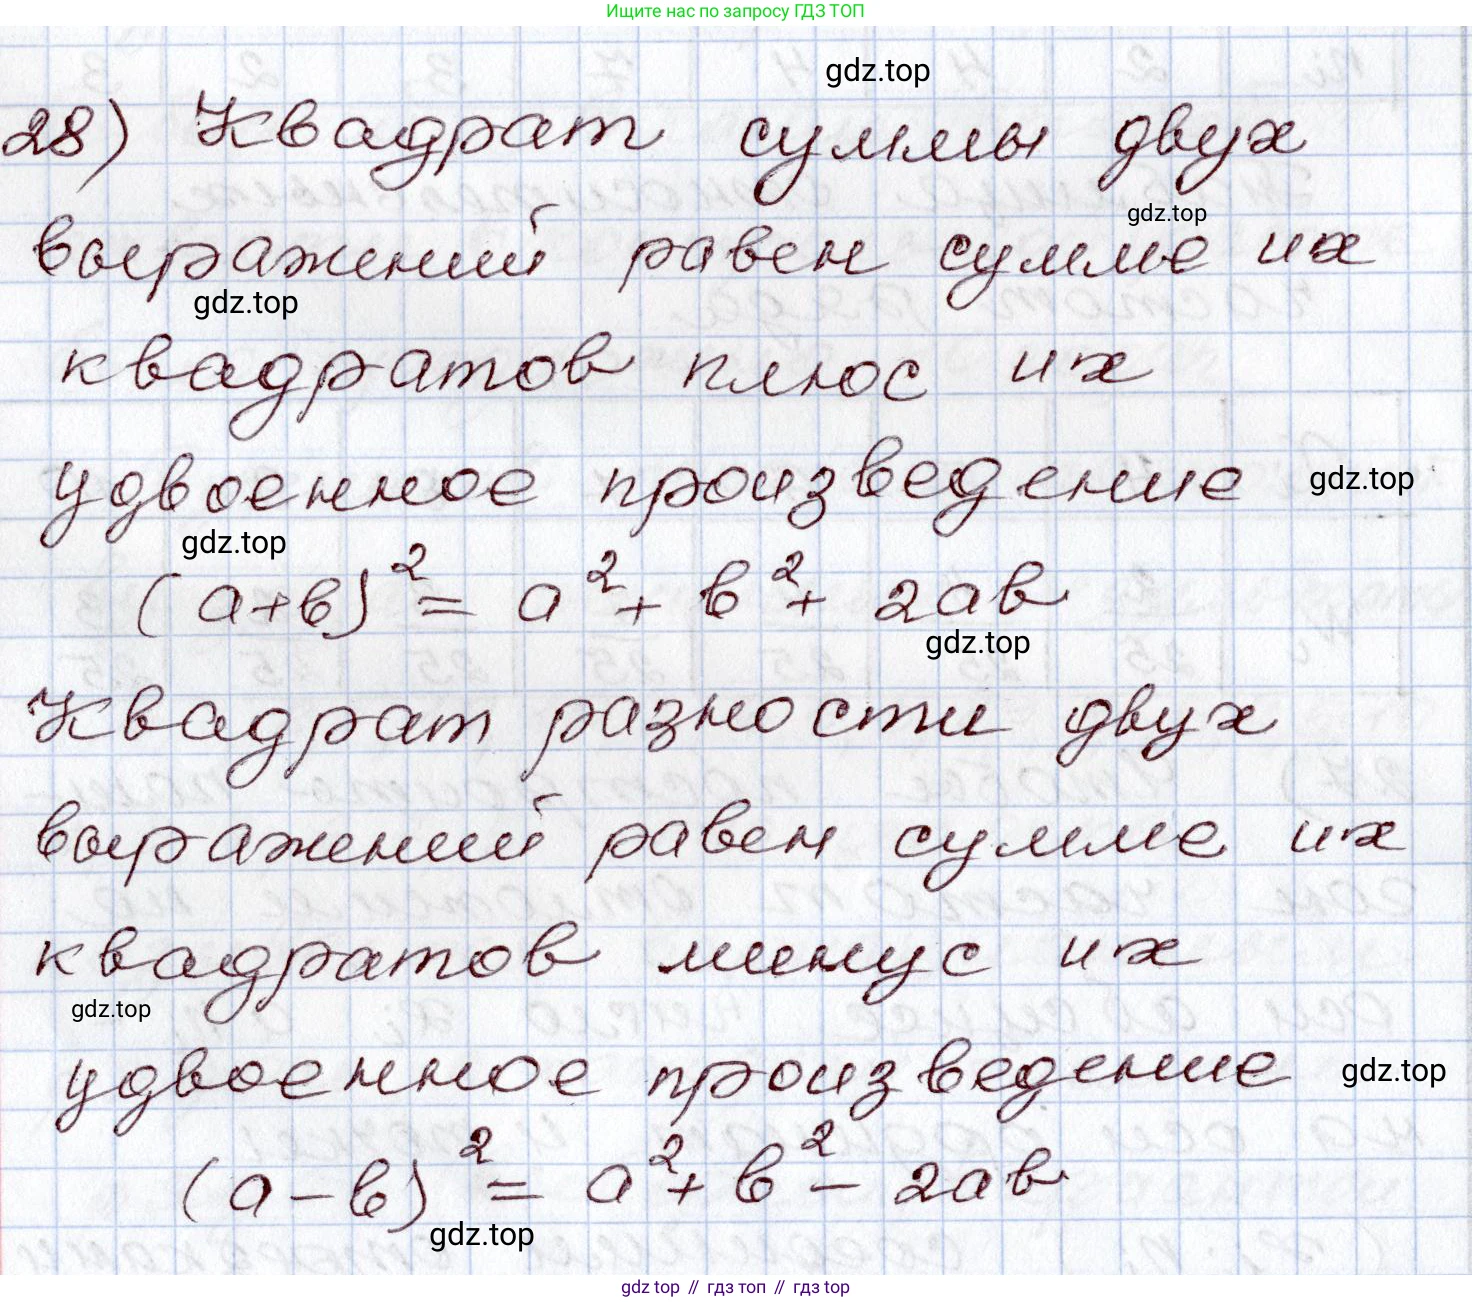 Ищите нас по запросу ГДЗ ТОП
gdz.top
28) Квадрат суммы двух
gdz.top
выражений равен сумме их
gdz.top
квадратов плюс их
удвоенное произведение
gdz.top
gdz.top
(a+b)²= a²+ b²+ 2ab
gdz.top
Квадрат разности двух
выражений равен сумме их
квадратов минус их
gdz.top
удвоенное произведение
gdz.top
(a-b)²= a²+ b²- 2ab
gdz.top
gdz top // гдз топ // гдз top